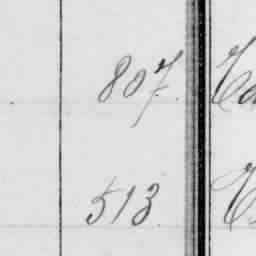 807.
513